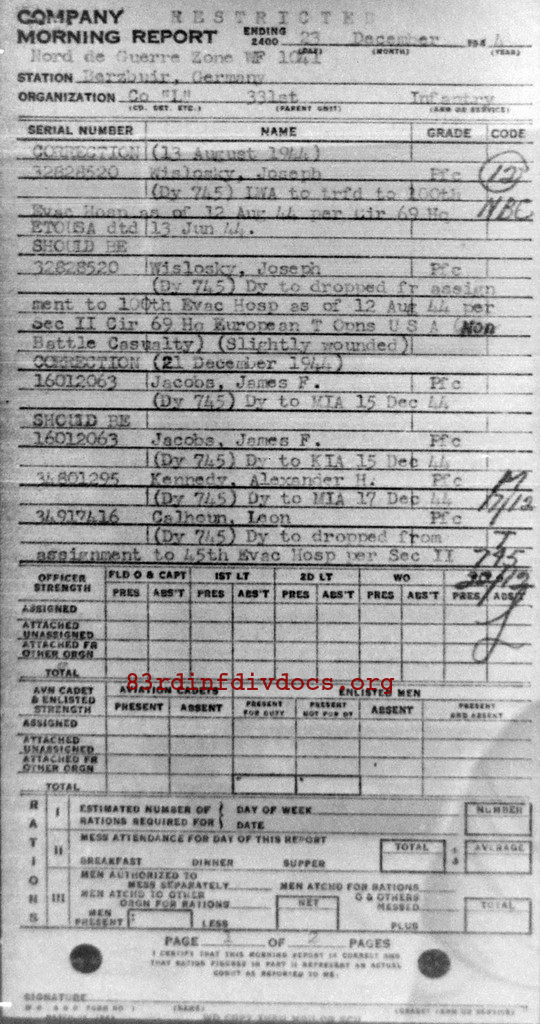 COMPANY RESTRICTED
MORNING REPORT ENDING 2400 23 December 1944
(DAY) (MONTH) (YEAR)
Nord de Guerre Zone WF 1041
STATION Berzbuir, Germany
ORGANIZATION Co "L" 331st Infantry
(CO. DET. ETC.) (PARENT UNIT) (ARM OR SERVICE)
SERIAL NUMBER NAME GRADE CODE
CORRECTION (13 August 1944)
32828520 Wislosky, Joseph Pfc 12
(Dy 745) LWA to trfd to 100th NBC
Evac Hosp as of 12 Aug 44 per Cir 69 Hq
ETOUSA dtd 13 Jun 44.
SHOULD BE
32828520 Wislosky, Joseph Pfc
(Dy 745) Dy to dropped fr assign
ment to 100th Evac Hosp as of 12 Aug 44 per
Sec II Cir 69 Hq European T Opns U S A (Non
Battle Casualty) (Slightly wounded)
CORRECTION (21 December 1944)
16012063 Jacobs, James F. Pfc
(Dy 745) Dy to MIA 15 Dec 44
SHOULD BE
16012063 Jacobs, James F. Pfc
(Dy 745) Dy to KIA 15 Dec 44
34801295 Kennedy, Alexander H. Pfc M
(Dy 745) Dy to MIA 17 Dec 44 17/12
34917416 Calhoun, Leon Pfc
(Dy 745) Dy to dropped from
assignment to 45th Evac Hosp per Sec II 745
OFFICER STRENGTH FLD O & CAPT 1ST LT 2D LT WO
PRES ABS'T PRES ABS'T PRES ABS'T PRES ABS'T PRES ABS'T
ASSIGNED
ATTACHED UNASSIGNED
ATTACHED FR OTHER ORGN
TOTAL
83rdinfdivdocs.org
AVN CADET & ENLISTED STRENGTH AVIATION CADETS ENLISTED MEN
PRESENT ABSENT PRESENT FOR DUTY PRESENT NOT FOR DY ABSENT PRESENT AND ABSENT
ASSIGNED
ATTACHED UNASSIGNED
ATTACHED FR OTHER ORGN
TOTAL
RATIONS
I ESTIMATED NUMBER OF RATIONS REQUIRED FOR { DAY OF WEEK NUMBER
DATE
II MESS ATTENDANCE FOR DAY OF THIS REPORT TOTAL AVERAGE
BREAKFAST DINNER SUPPER
III MEN AUTHORIZED TO MESS SEPARATELY MEN ATCHD FOR RATIONS
MEN ATCHD TO OTHER ORGN FOR RATIONS NET O & OTHERS MESSED TOTAL
MEN PRESENT LESS PLUS
PAGE 1 OF 2 PAGES
I CERTIFY THAT THIS MORNING REPORT IS CORRECT AND
THAT RATION FIGURES IN PART II REPRESENT AN ACTUAL
COUNT AS REPORTED TO ME.
SIGNATURE
(NAME) (GRADE) (ARM OR SERVICE)